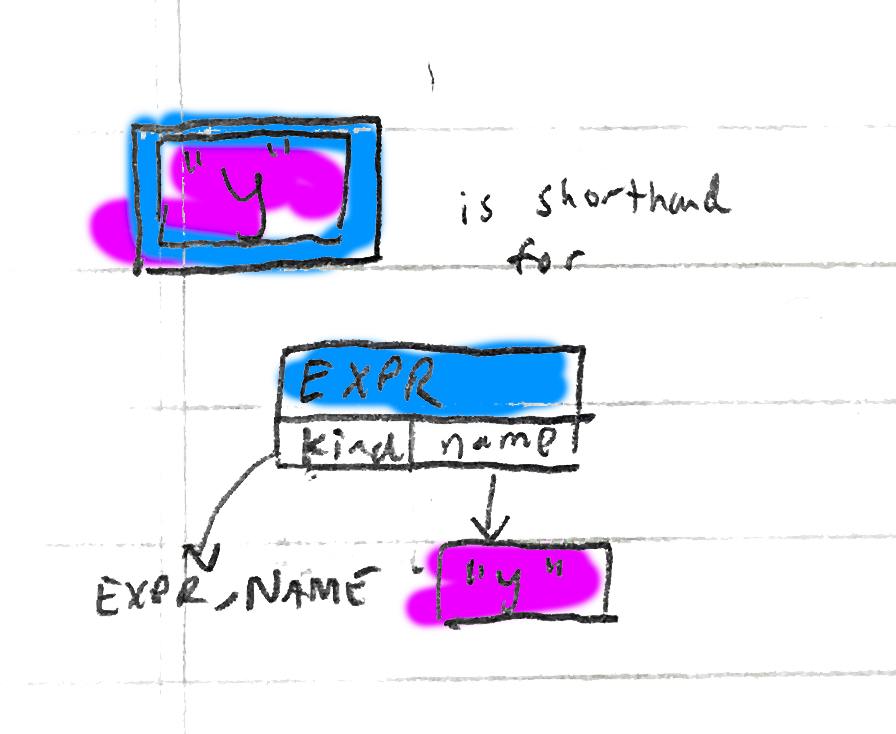 "y"
is shorthand
for
EXPR
kind name
EXPR_NAME
"y"